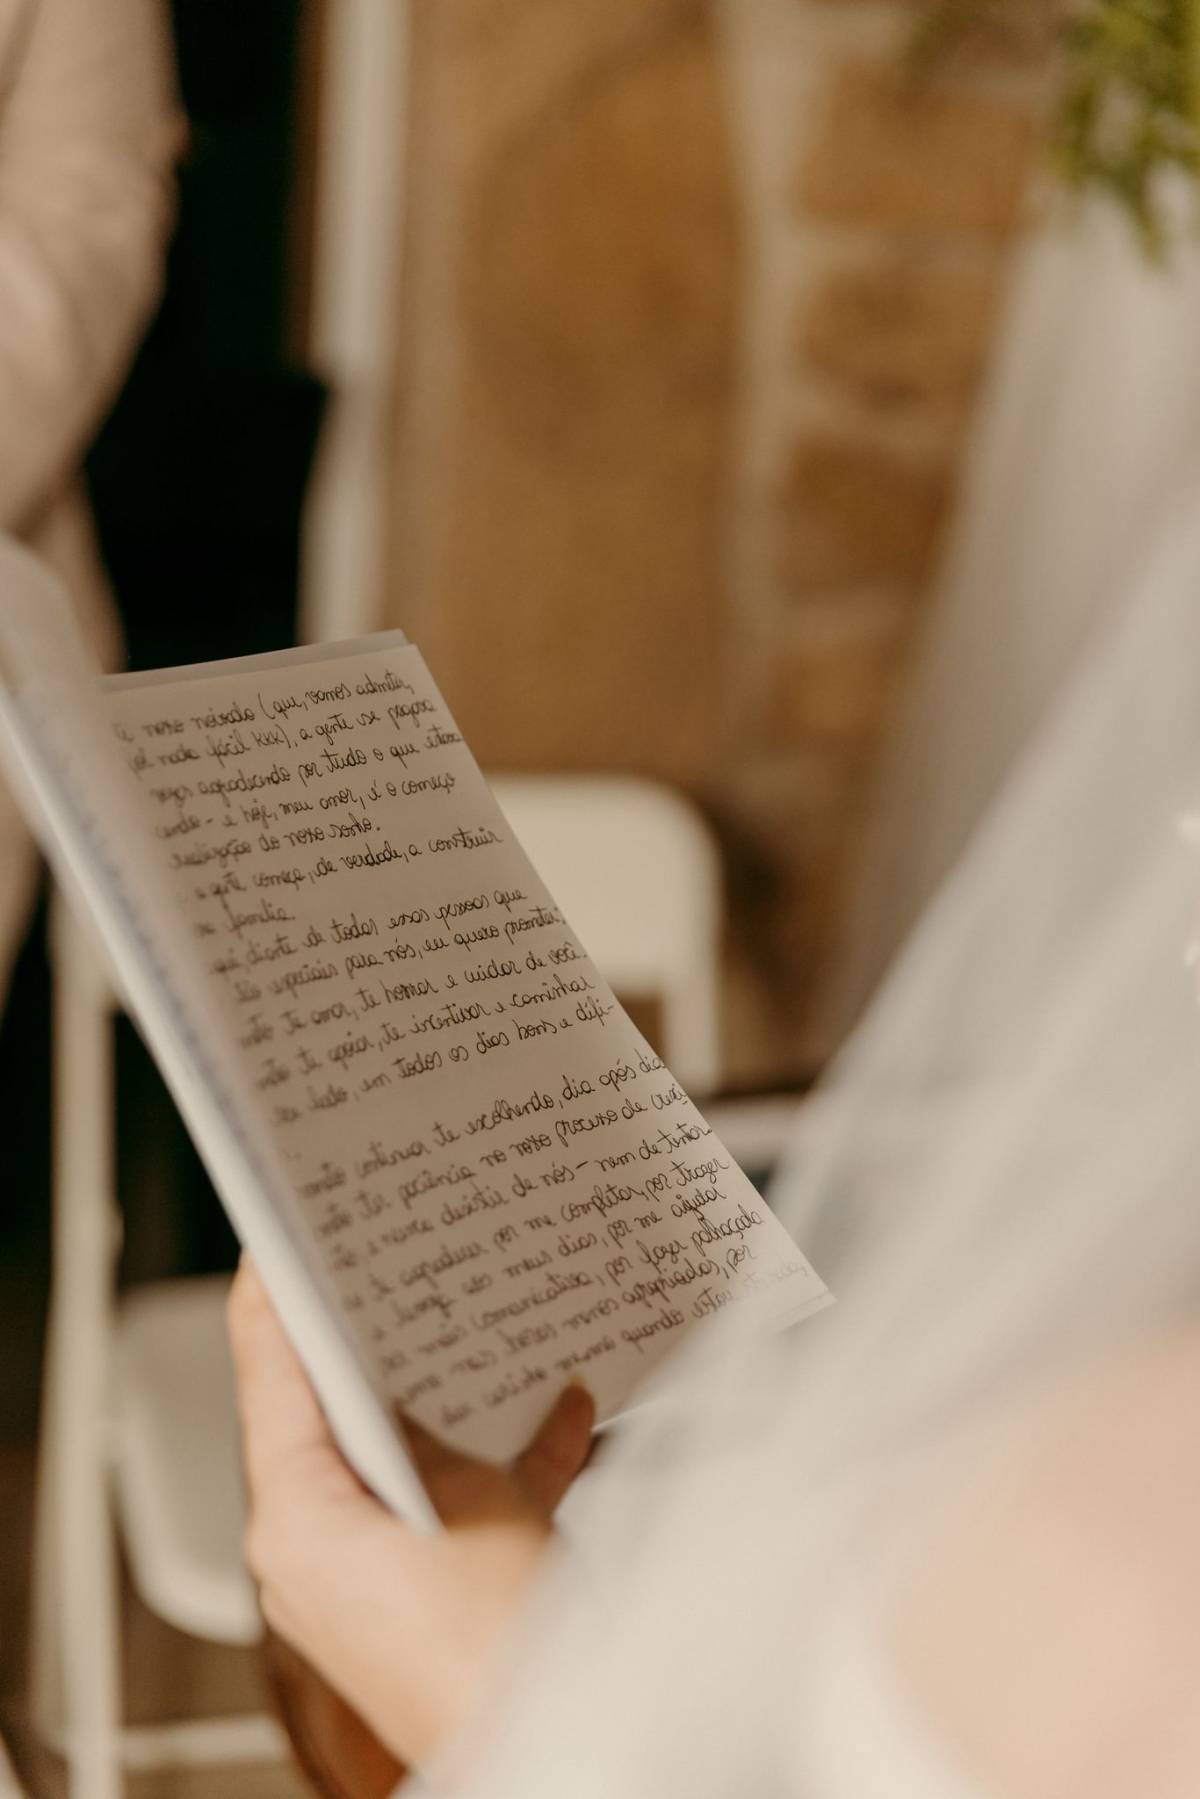 nosso noivado (que, vamos admitir,
foi nada fácil kkk), a gente se pegava
agradecendo por tudo o que estava
- e hoje, meu amor, é o começo
realização do nosso sonho.
a gente começa, de verdade, a construir
família.
aqui, diante de todas essas pessoas que
tão especiais para nós, eu quero prometer:
te amar, te honrar e cuidar de você.
te apoiar, te incentivar e caminhar
seu lado, em todos os dias bons e difí-
continuar te escolhendo, dia após dia
ter paciência no nosso processo de
e nunca desistir de nós - nem de tentar.
te agradecer por me completar, por trazer
aos meus dias, por me ajudar
ser mais comunicativa, por fazer palhaçada
nas horas menos apropriadas, por
mesmo quando estou